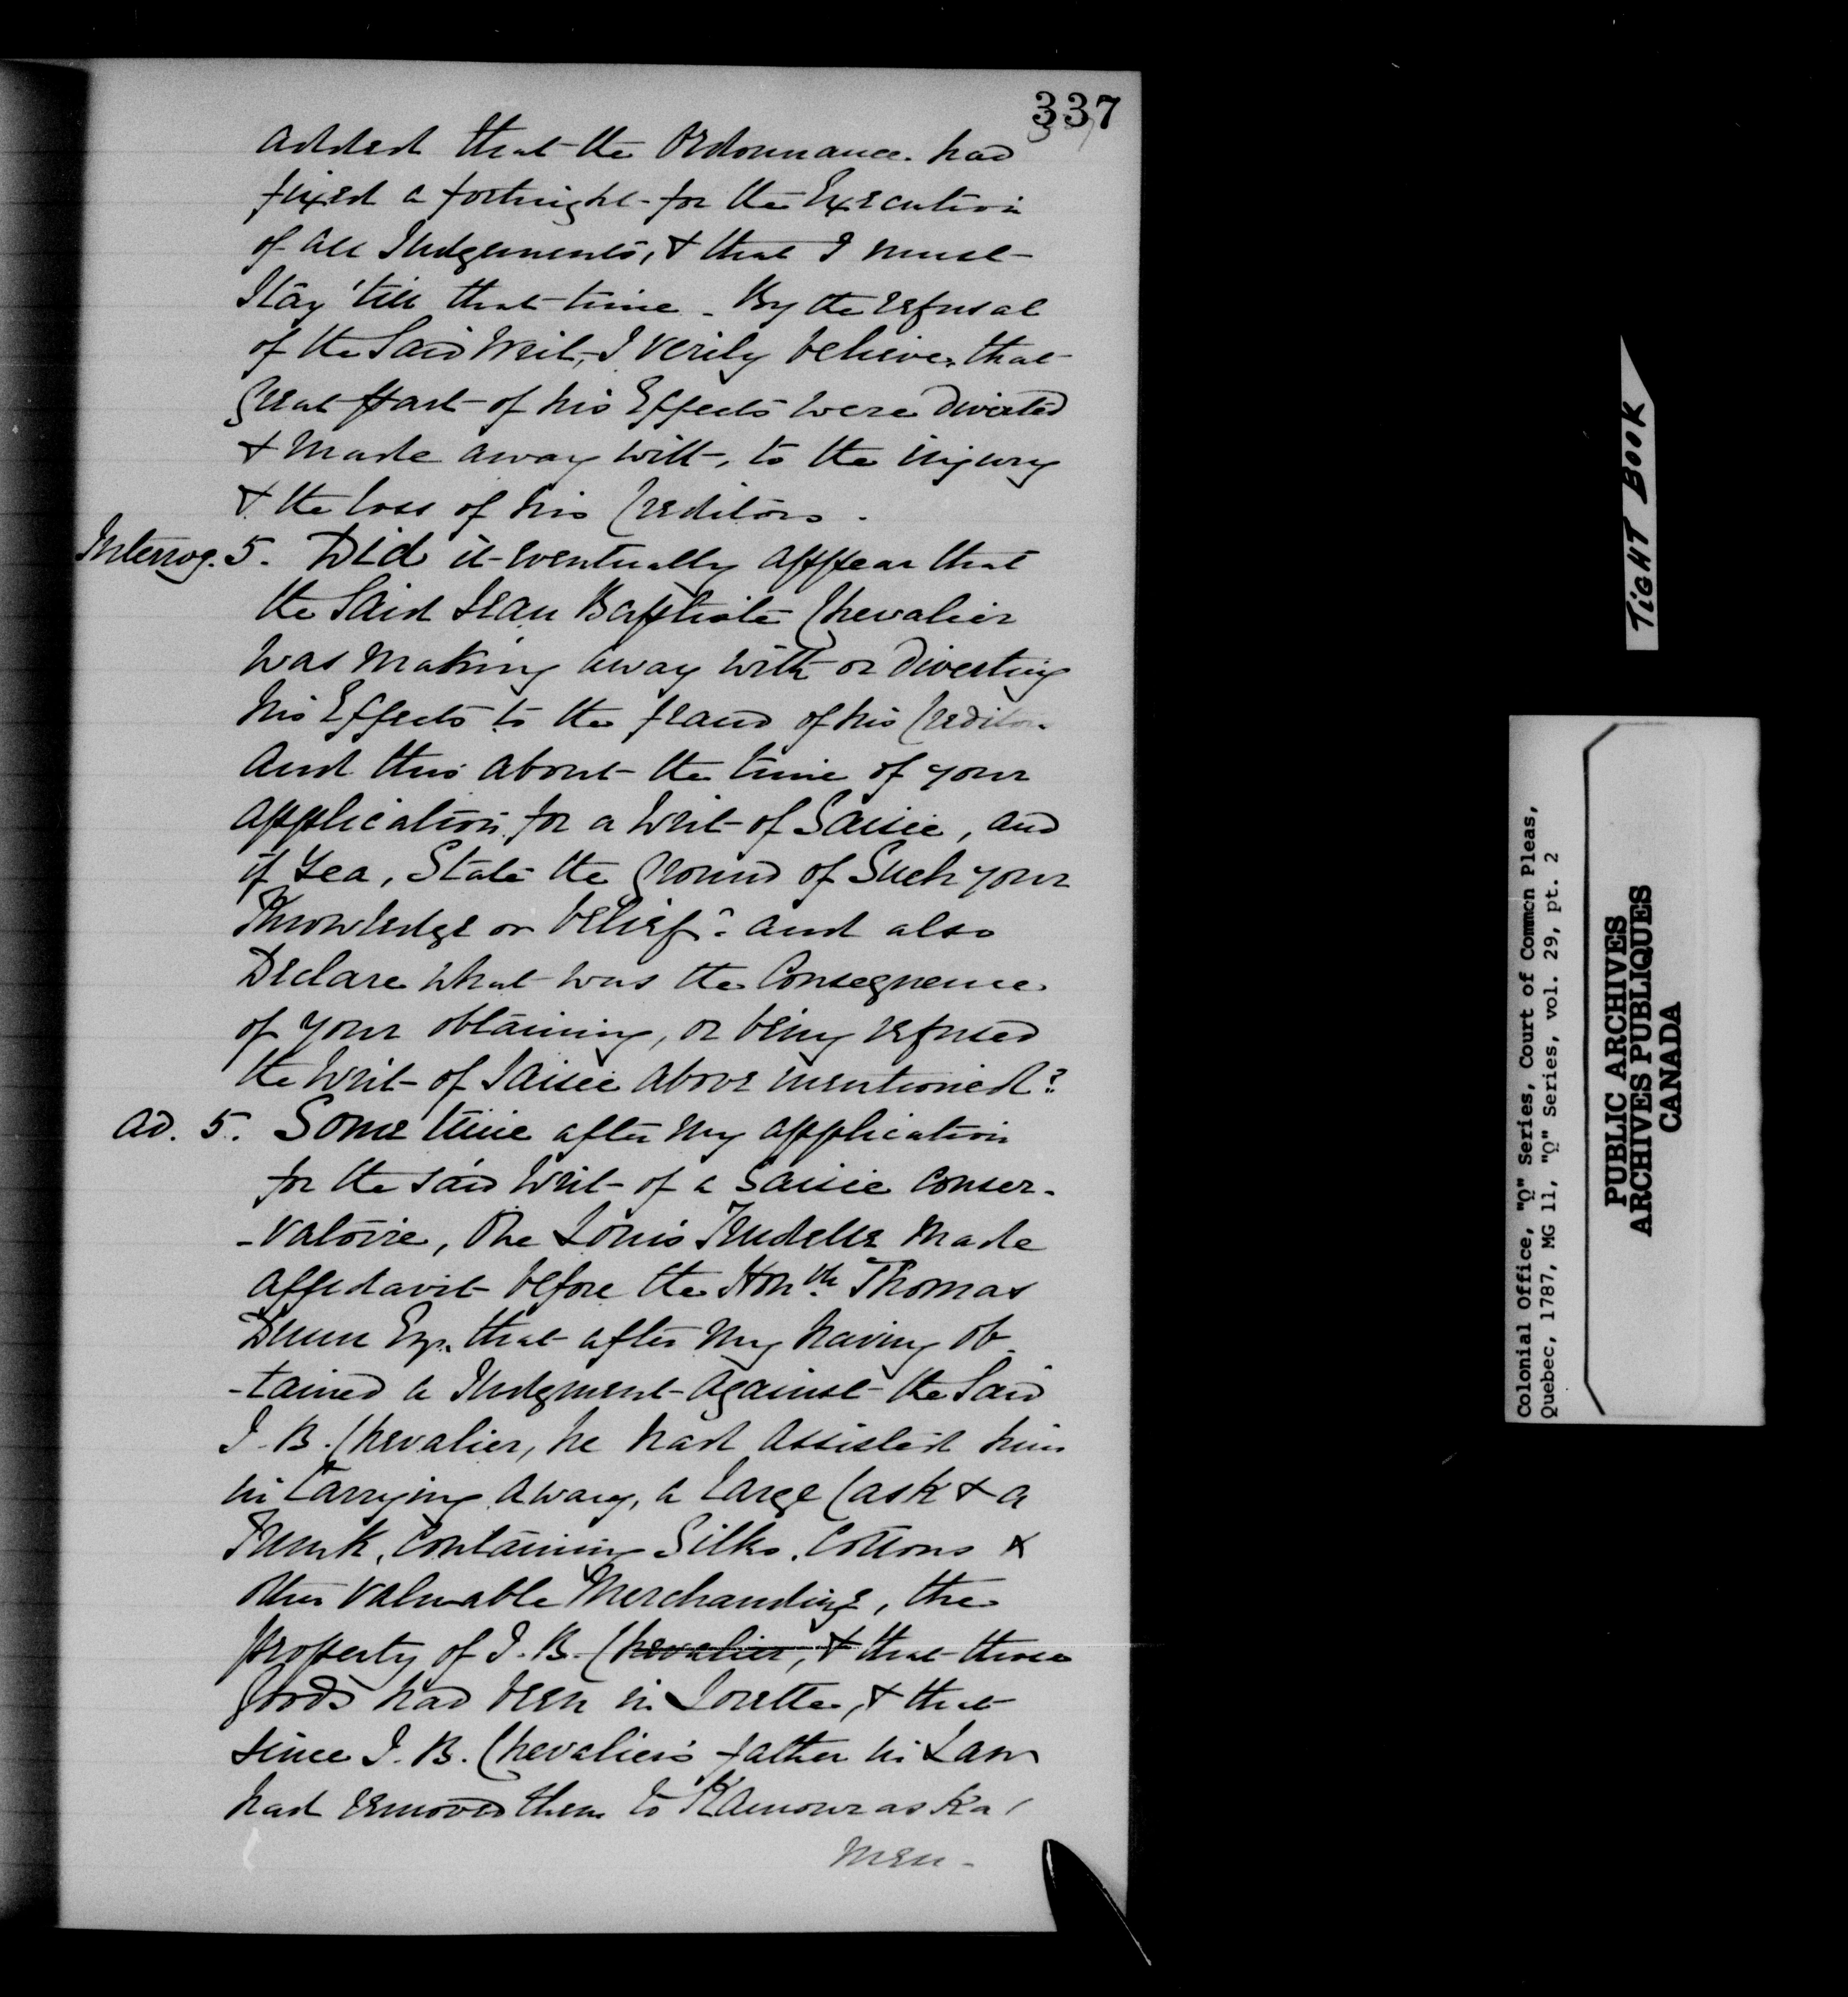 337
added that the Ordonnance had
fixed a fortnight for the Execution
of all Judgements, & that I must
Stay 'till that time - By the refusal
of the Said Writ, I verily believe, that
great part of his Effects were diverted
& made away with, to the injury
& the loss of his Creditors.
Interrog. 5. Did it eventually appear that
the Said Jean Baptiste Chevalier
was making away with or diverting
his Effects to the fraud of his Creditors
and this about the time of your
application for a Writ of Saisie, and
if Yea, State the ground of Such your
Knowledge or belief? and also
Declare what was the Consequence
of your obtaining, or being refused
the Writ of Saisie above mentioned?
Ad. 5. Some time after my application
for the said Writ of a Saisie Conser-
-vatoire, One Louis Trudelle made
affidavit before the Honble Thomas
Dunn Esq. that after my having ob-
-tained a Judgment against the Said
J. B. Chevalier, he had assisted him
in Carrying away, a large Cask & a
Trunk, Containing Silks, Cottons &
other valuable Merchandize, the
property of J. B. Chevalier, & that those
goods had been in Lorette, & that
since J. B. Chevalier's father in Law
had removed them to Kamouraska,
men-
TIGHT BOOK
Colonial Office, "Q" Series, Court of Common Pleas,
Quebec, 1787, MG 11, "Q" Series, vol. 29, pt. 2
PUBLIC ARCHIVES
ARCHIVES PUBLIQUES
CANADA